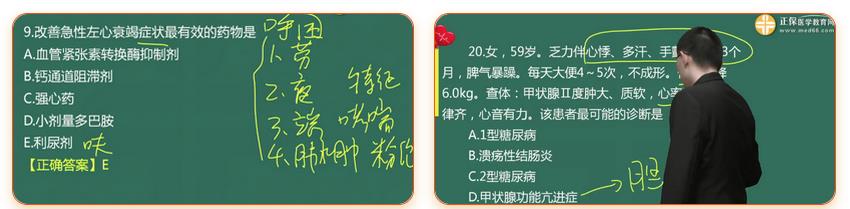 9.改善急性左心衰竭症状最有效的药物是
A.血管紧张素转换酶抑制剂
B.钙通道阻滞剂
C.强心药
D.小剂量多巴胺
E.利尿剂
【正确答案】E
呋
呼困
1.劳
2.夜
3.端
4.肺水肿
特征
咳喘
粉
正保医学教育网
www.med66.com
20.女，59岁。乏力伴心悸、多汗、手
3个
月，脾气暴躁。每天大便4～5次，不成形。
6.0kg。查体：甲状腺Ⅱ度肿大、质软，心率
律齐，心音有力。该患者最可能的诊断是
A.1型糖尿病
B.溃疡性结肠炎
C.2型糖尿病
D.甲状腺功能亢进症